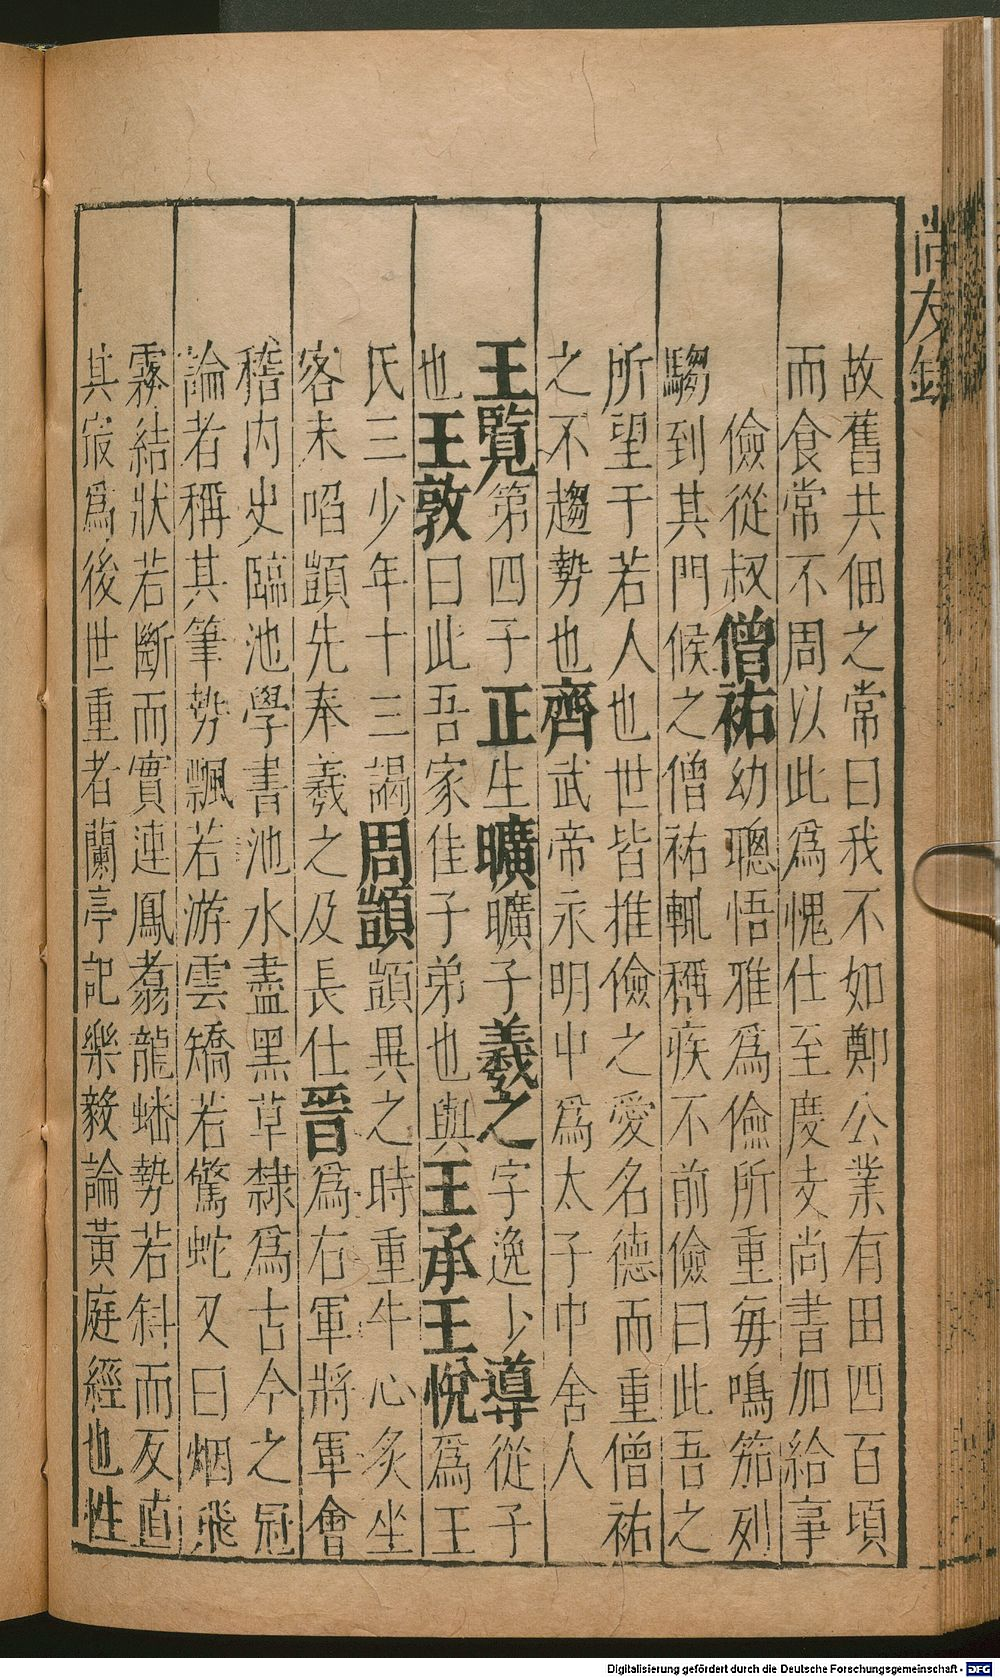 尚友錄
故舊共佃之常曰我不如鄭公業有田四百頃
而食常不周以此為愧仕至度支尚書加給事
儉從叔僧祐幼聰悟雅為儉所重每鳴笳列
騶到其門候之僧祐輒稱疾不前儉曰此吾之
所望于若人也世皆推儉之愛名德而重僧祐
之不趨勢也齊武帝永明中為太子中舍人
王覽第四子正生曠曠子羲之字逸少導從子
也王敦曰此吾家佳子弟也與王承王悅為王
氏三少年十三謁周顗顗異之時重牛心炙坐
客未啗顗先奉羲之及長仕晉為右軍將軍會
稽內史臨池學書池水盡黑草隸為古今之冠
論者稱其筆勢飄若游雲矯若驚蛇又曰烟飛
霧結狀若斷而實連鳳翥龍蟠勢若斜而反直
其㝡為後世重者蘭亭記樂毅論黃庭經也性
Digitalisierung gefördert durch die Deutsche Forschungsgemeinschaft - DFG